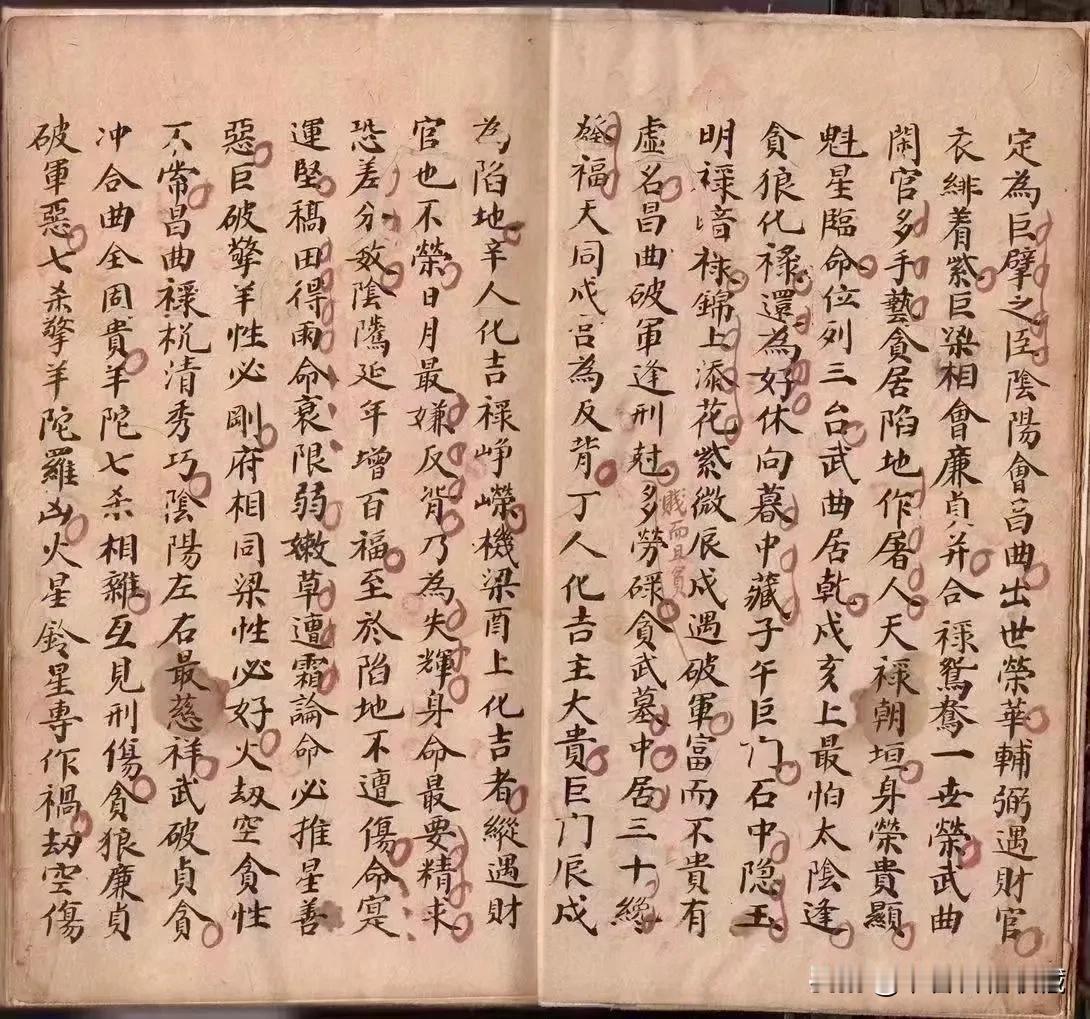 定為巨擘之臣陰陽會昌曲出世榮華輔弼遇財官
衣緋着紫巨梁相會廉貞并合祿鴛鴦一世榮武曲
閑官多手藝貪居陷地作屠人天祿朝垣身榮貴顯
魁星臨命位列三台武曲居乾戌亥上最怕太陰逢
貪狼化祿還為好休向暮中藏子午巨门石中隐玉
明祿喑祿錦上添花紫微辰戌遇破軍富而不貴有
虛名昌曲破軍逢刑尅多勞碌貪武墓中居三十纔
賎而且貧
發福天同戌宫為反背丁人化吉主大貴巨门辰戌
為陷地辛人化吉祿峥嶸機梁酉上化吉者縱遇財
官也不榮日月最嫌反背乃為失輝身命最要精求
恐差分数陰騭延年增百福至於陷地不遭傷命寔
運堅稿田得雨命衰限弱嫩草遭霜論命必推星善
惡巨破擎羊性必剛府相同梁性必好火劫空貪性
不常昌曲祿机清秀巧陰陽左右最慈祥武破貞貪
冲合曲全固貴羊陀七杀相雜互見刑傷貪狼廉貞
破軍惡七杀擎羊陀羅凶火星鈴星専作禍劫空傷